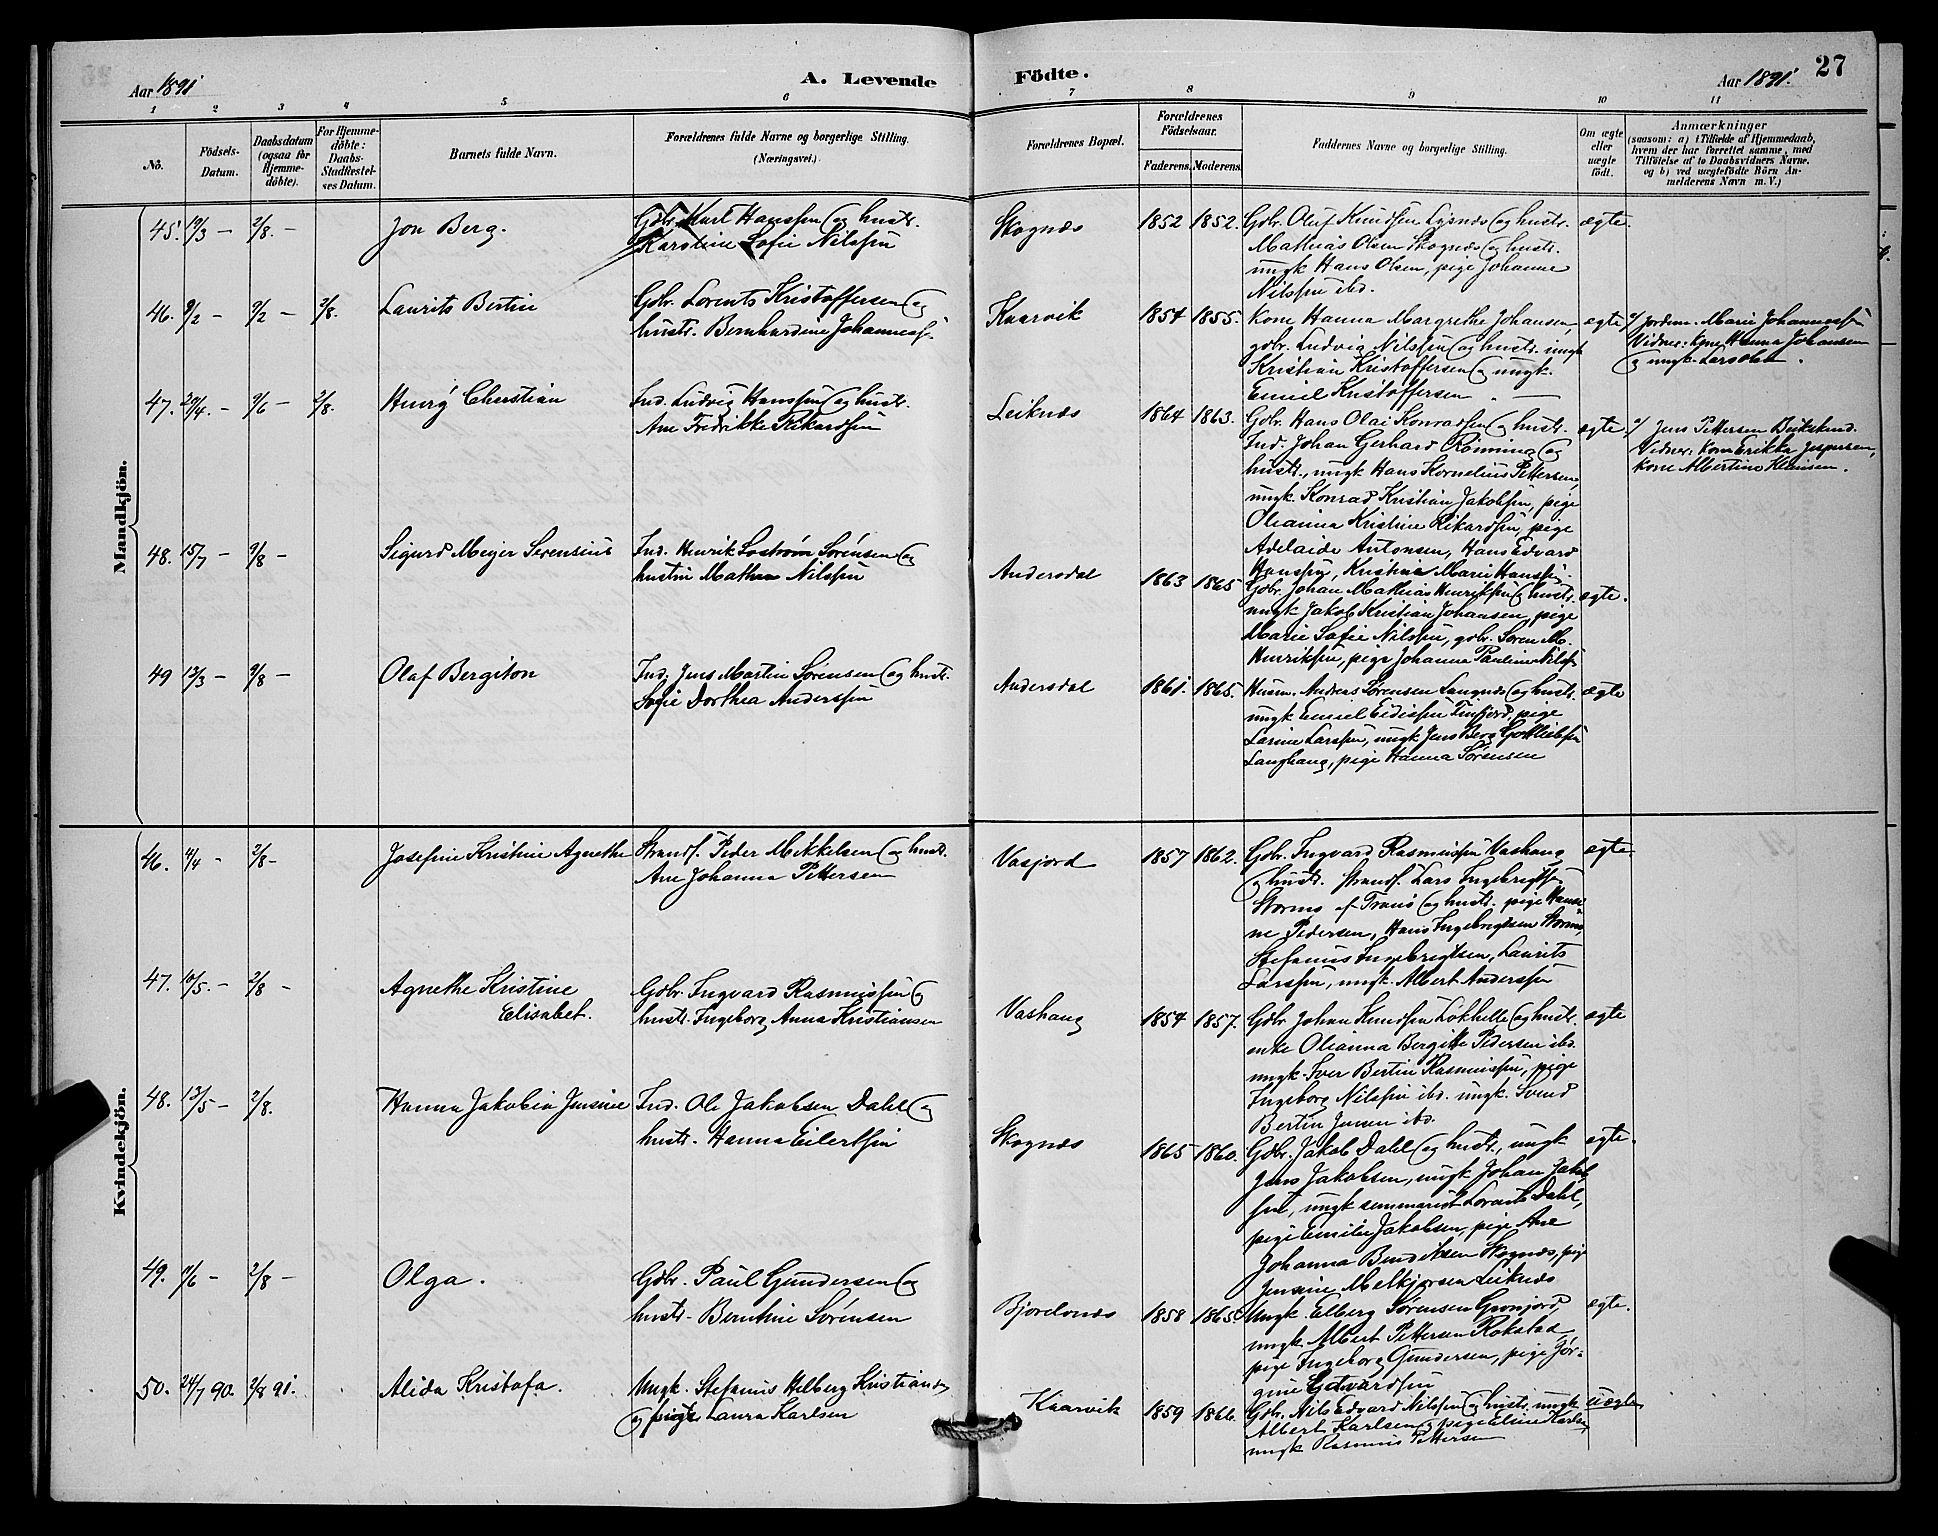 Aar 1891
A. Levende
Födte.
Aar 1891.
27
1 2 3 4 5 6 7 8 9 10 11
No.
Födsels-
Datum.
Daabsdatum
(ogsaa for
Hjemme-
döbte).
For Hjemme-
döbte:
Daabs-
Stadfæstel-
ses Datum.
Barnets fulde Navn.
Forældrenes fulde Navne og borgerlige Stilling.
(Næringsvei.)
Forældrenes Bopæl.
Forældrenes
Födselsaar.
Faderens. Moderens.
Faddernes Navne og borgerlige Stilling.
Om ægte
eller
uægte
födt.
Anmærkninger
(saasom: a) i Tilfælde af Hjemmedaab,
hvem der har forrettet samme, med
Tilföielse af to Daabsvidners Navne,
og b) ved uægtefödte Börn An-
melderens Navn m. V.)
Mandkjön.
45. 19/3 – 2/8. –
Jon Berg.
Gdbr. Kurt Hanssen og hustr.
Karoline Sofie Nilssen
Skognæs
1852 1852.
Gdbr. Oluf Knudsen Lysnæs og hustr.
Mathias Olsen Skognæs og hustr.
ungk Hans Olsen, pige Johanne
Nilssen ibd.
ægte.
46. 9/2 – 9/2 – 2/8.
Laurits Bertin
Gdbr. Lorents Kristoffersen og
hustr. Bernhardine Johanness.
Kaarvik
1854 1855.
Kone Hanna Margrethe Johansen,
gdbr. Ludvig Nilssen og hustr. ungk
Kristian Kristoffersen og ungk.
Emiel Kristoffersen
ægte
Jordm. Marie Johannessen
Vidner: Kone Hanna Johansen
og ungk.
47. 29/4. – 9/6 – 2/8.
Christian
Ind. Ludvig Hanssen og hustr.
Ane Fredrikke Rikardsen
Leiknæs
1864 1863.
Gdbr. Hans Olai Konradsen og hustr.
Ind. Johan Gerhard Rönning og
hustr., ungk Hans Kornelius Pettersen,
ungk. Konrad Kristian Jakobsen, pige
Olianna Kristine Rikardsen, pige
Adelaide Antonsen, Hans Edvard
Hanssen, Kristine Marie Hanssen.
ægte
Jens Pettersen
Vidner: Kone Erikka Jespersen,
Kone Albertine
48. 15/7 – 9/8 –
Sigurd Meyer Serensius
Ind. Henrik Sörensen og
hustru Nilssen
Andersdal
1863 1865
Gdbr. Johan Mathias Henriksen og hustr.
ungk Jakob Kristian Johansen, pige
Marie Sofie Nilssen, gdbr. Sören M.
Henriksen, pige Johanna Pauline
ægte.
49 13/3 – 9/8 –
Olaf Bergiton
Ind. Jens Martin Sörensen og hustr.
Sofie Dorthea Anderssen
Andersdal
1861. 1865.
Husm. Andreas Sörensen Langnæs og hustr.
ungk Emiel pige
Larine Larssen, ungk Jens Berg Gottliebsen
pige Hanna Sörensen
ægte
Kvindekjön.
46. 4/4 – 2/8 –
Josefine Kristine Agnethe
Strands. Peder Mikkelsen og hustr.
Ane Johanna Pettersen
Vasjord
1857 1862.
Gdbr. Ingvard Rasmussen Vashaug
og hustr. Strands. Lars Ingebrigts.
Storms af og hustr. pige
Pedersen, Hans Ingebrigtsen Storms,
Stefanus Ingebrigtsen, Laurits
Larssen, ungk. Albert Anderssen
ægte.
47. 10/5. – 2/8 –
Agnethe Kristine
Elisabet.
Gdbr. Ingvard Rasmussen og
hustr. Ingeborg Anna Kristiansen
Vashaug
1854 1857.
Gdbr Johan Knudsen og hustr.
enke Olianna Bergitte Pedersen ibd.
ungk. Iver Bertin Rasmussen, pige
Ingeborg Nilssen ibd. ungk. Svend
Bertin Jensen ibd.
ægte
48. 13/5 – 2/8.
Hanna Jakobia Jensine
Ind. Ole Jakobsen Dahl og
hustr. Hanna Eilertsen
Skognæs
1865 1860.
Gdbr. Jakob Dahl og hustr., ungk
Jens Jakobsen, ungk Johan Jakob-
sen, ungk seminarist Lorents Dahl,
pige Emilie Jakobsen, pige Ane
Johanna Bendiksen Skognæs, pige
Jensine Melkjorsen Leiknæs
ægte.
49. 1/6 – 2/8 –
Olga.
Gdbr. Paul Gundersen og
hustr. Berntine Sörensen
Bjorelvnæs
1858 1865
Ungk. Elberg Sörensen
ungk. Albert Pettersen Rokstad
pige Ingeborg Gundersen, pige Jör-
gine
ægte.
50. 24/7 90. 2/8 91.
Alida Kristofa.
Ungk. Stefanus Helberg Kristians.
og pige Laura Karlsen
Kaarvik
1859 1866.
Gdbr. Nils Edvard Nilssen og hustr. ungk
Albert Karlsen, pige Eline Karlsen,
ungk Rasmus Pettersen
uægte